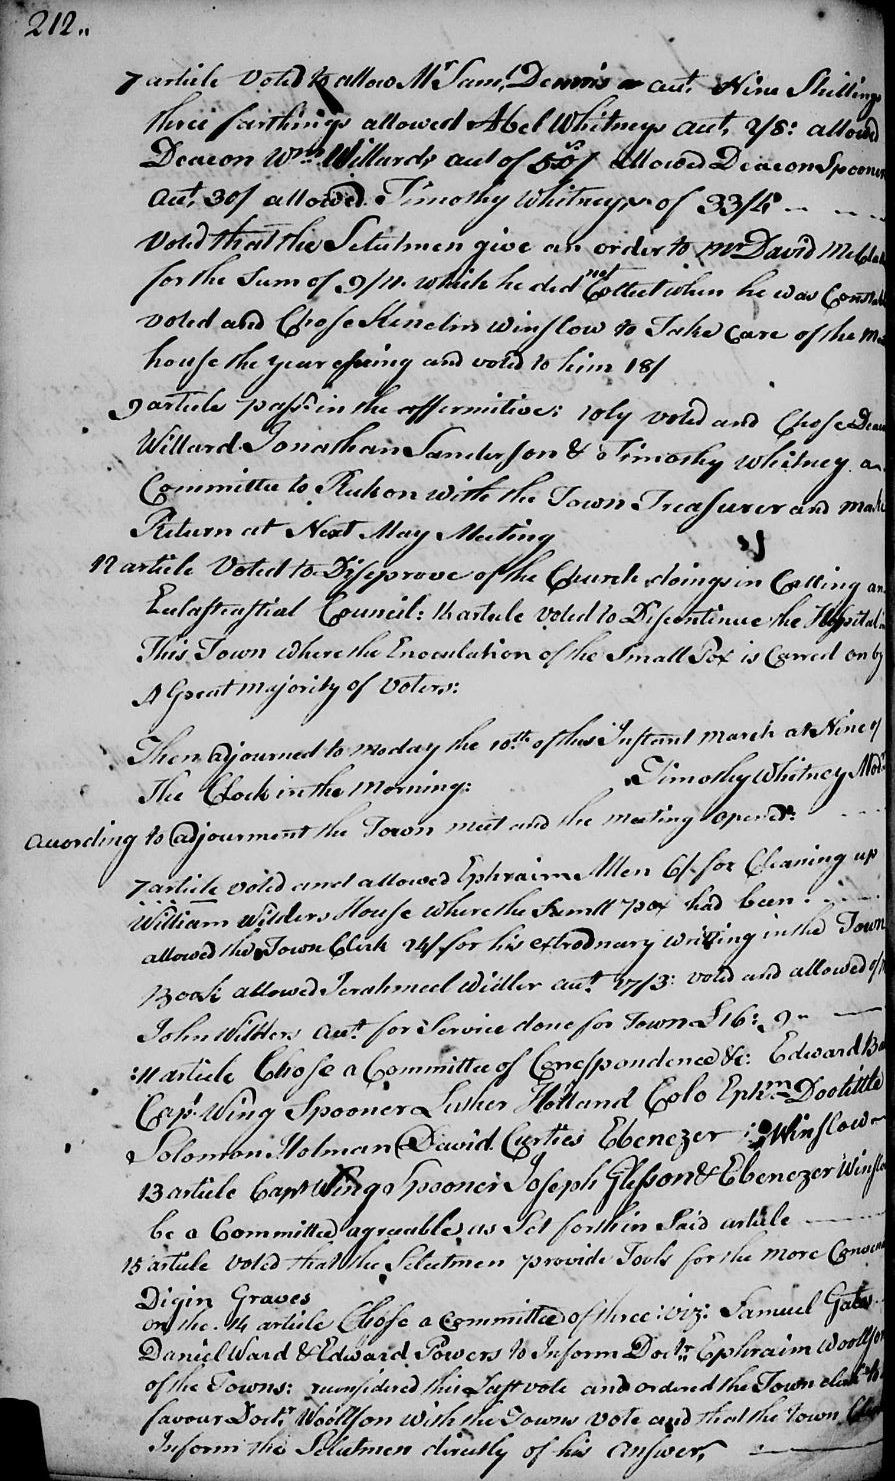 212..
7 article Voted to allow Mr Saml Dennis aut. Nine Shillings
three farthings allowed Abel Whitneys aut. 2/8: allowed
Deacon Wm Willards aut of allowed Deacon Spooner
aut. 30/ allowed Timothy Whitneys of 33/4
Voted that the Selectmen give an order to mr David
for the Sum of 9/4 which he did not Collect when he was
voted and Chose Kenelm Winslow to Take Care of the
house the year ensuing and voted to him 18/
9 article pass.d in the affermitive: 10ly voted and Chose
Willard Jonathan Sanderson & Timothy Whitney a
Committe to Rekon with the Town Treasurer and make
Return at Next May Meeting
12 article Voted to Disprove of the Church doings in Calling an
Eclasticastial Council: 14 article voted to Discontinue the Hospital in
This Town where the Enoculation of the Small Pox is Carred on by
A Great majority of Voters:
Then adjourned to moday the 10th of this Instant march at Nine of
The Clock in the morning: Timothy Whitney Modr
According to adjourment the Town meet and the meeting opened:
7 article voted and allowed Ephraim Allen 6/ for Cleaning up
William Wilders House where the Small pox had been:
allowed the Town Clerk 24/ for his extrodnary writing in the Town
Book allowed Jerahmeel Wilder aut. 17/3: voted and allowed of
John Wilders aut. for Service done for Town £16: 9
:11 article Chose a Committee of Correspondence &c: Edward
Capt Wing Spooner Luther Holland Colo Ephm Doolittle
Solomon Holman David Curties Ebenezer Winslow
13 article Capt Wing Spooner Joseph Glesson & Ebenezer
be a Committed agreable as Set forth in Said article
15 article voted that the Selectmen provide Tools for the more
Digin Graves
on the 14 article Chose a Committee of three: viz: Samuel Gates
Daniel Ward & Edward Powers to Inform Doctr Ephraim
of the Towns: reconsidered this Last vote and ordered the Town
favour Doctr Woolson with the Towns vote and that the town
Inform the Selectmen directly of his answer.